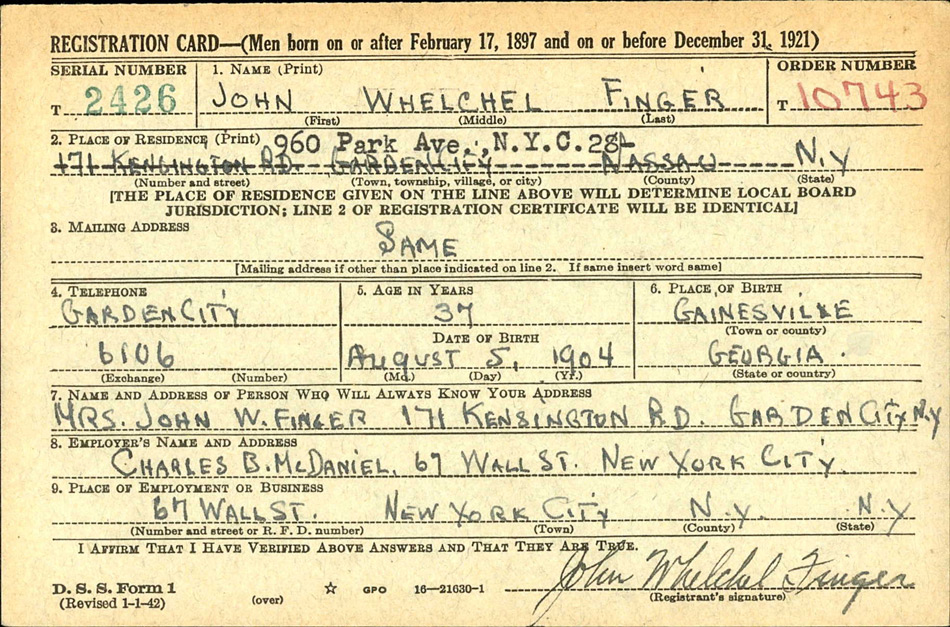 REGISTRATION CARD—(Men born on or after February 17, 1897 and on or before December 31, 1921)
SERIAL NUMBER 1. NAME (Print) ORDER NUMBER
T 2426 JOHN WHELCHEL FINGER T 10743
(First) (Middle) (Last)
2. PLACE OF RESIDENCE (Print) 960 Park Ave., N.Y.C. 28
171 KENSINGTON RD. GARDEN CITY NASSAU N.Y
(Number and street) (Town, township, village, or city) (County) (State)
[THE PLACE OF RESIDENCE GIVEN ON THE LINE ABOVE WILL DETERMINE LOCAL BOARD
JURISDICTION; LINE 2 OF REGISTRATION CERTIFICATE WILL BE IDENTICAL]
3. MAILING ADDRESS
SAME
[Mailing address if other than place indicated on line 2. If same insert word same]
4. TELEPHONE 5. AGE IN YEARS 6. PLACE OF BIRTH
GARDEN CITY 37 GAINESVILLE
DATE OF BIRTH (Town or county)
6106 AUGUST 5, 1904 GEORGIA.
(Exchange) (Number) (Mo.) (Day) (Yr.) (State or country)
7. NAME AND ADDRESS OF PERSON WHO WILL ALWAYS KNOW YOUR ADDRESS
MRS. JOHN W. FINGER 171 KENSINGTON RD. GARDEN CITY N.Y
8. EMPLOYER'S NAME AND ADDRESS
CHARLES B. McDANIEL, 67 WALL ST. NEW YORK CITY.
9. PLACE OF EMPLOYMENT OR BUSINESS
67 WALL ST. NEW YORK CITY N.Y. N.Y
(Number and street or R. F. D. number) (Town) (County) (State)
I AFFIRM THAT I HAVE VERIFIED ABOVE ANSWERS AND THAT THEY ARE TRUE.
John Whelchel Finger
D. S. S. Form 1
(Revised 1-1-42) (over) ☆ GPO 16—21630-1 (Registrant's signature)